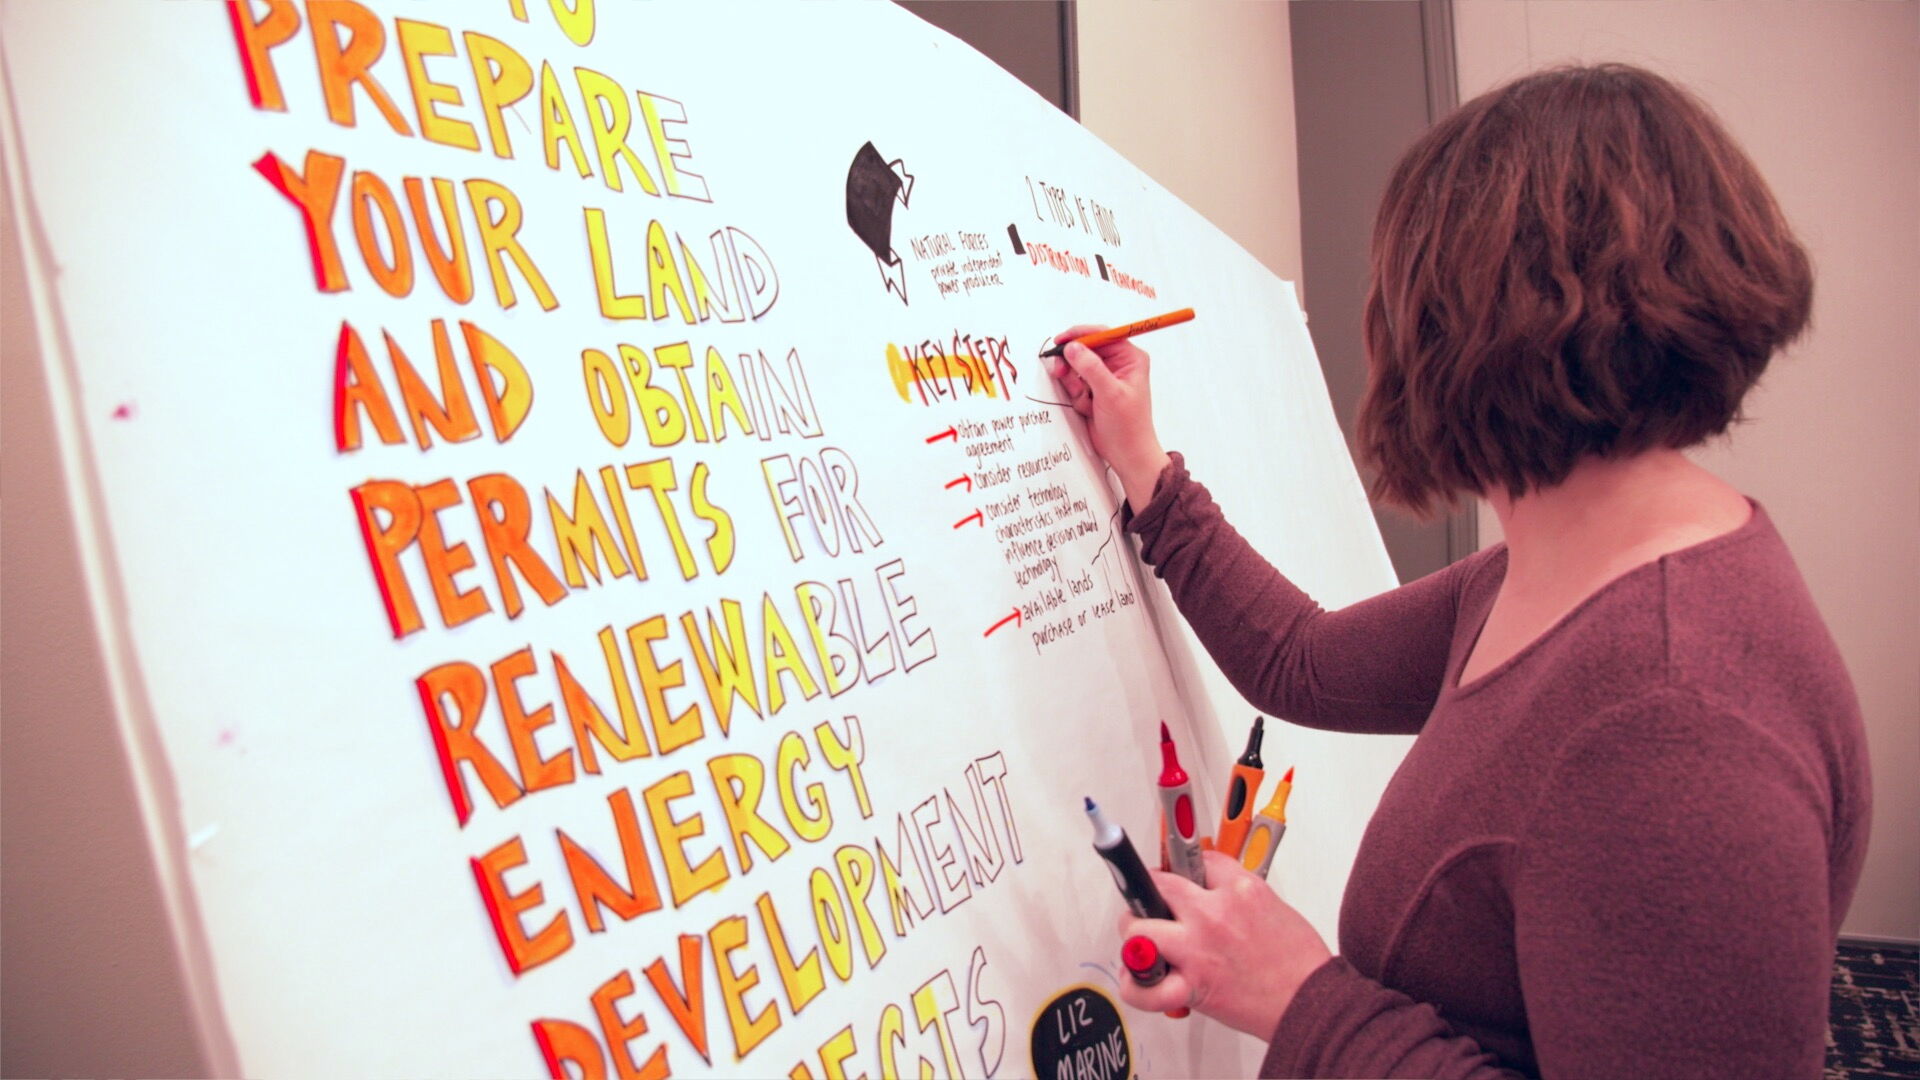 TO
PREPARE
YOUR LAND
AND OBTAIN
PERMITS FOR
RENEWABLE
ENERGY
DEVELOPMENT
NATURAL FORCES
private independent
power producer
2 TYPES OF GRIDS
KEY STEPS
→ obtain power purchase
agreement
→ consider resource (wind)
→ consider technology
characteristics that may
influence decision around
technology
→ available lands
purchase or lease land
LIZ
MARINE